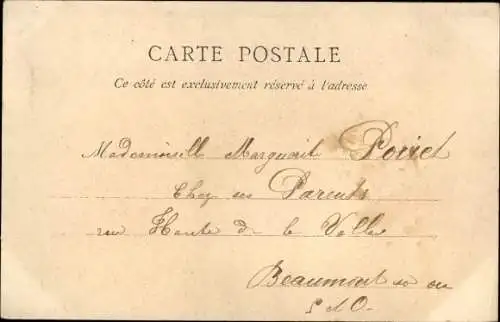 CARTE POSTALE
Ce côté est exclusivement réservé à l'adresse
Mademoisell Marguerit Poiret
Chez ses Parents
rue Haute de la Valle
Beaumont
S et O.